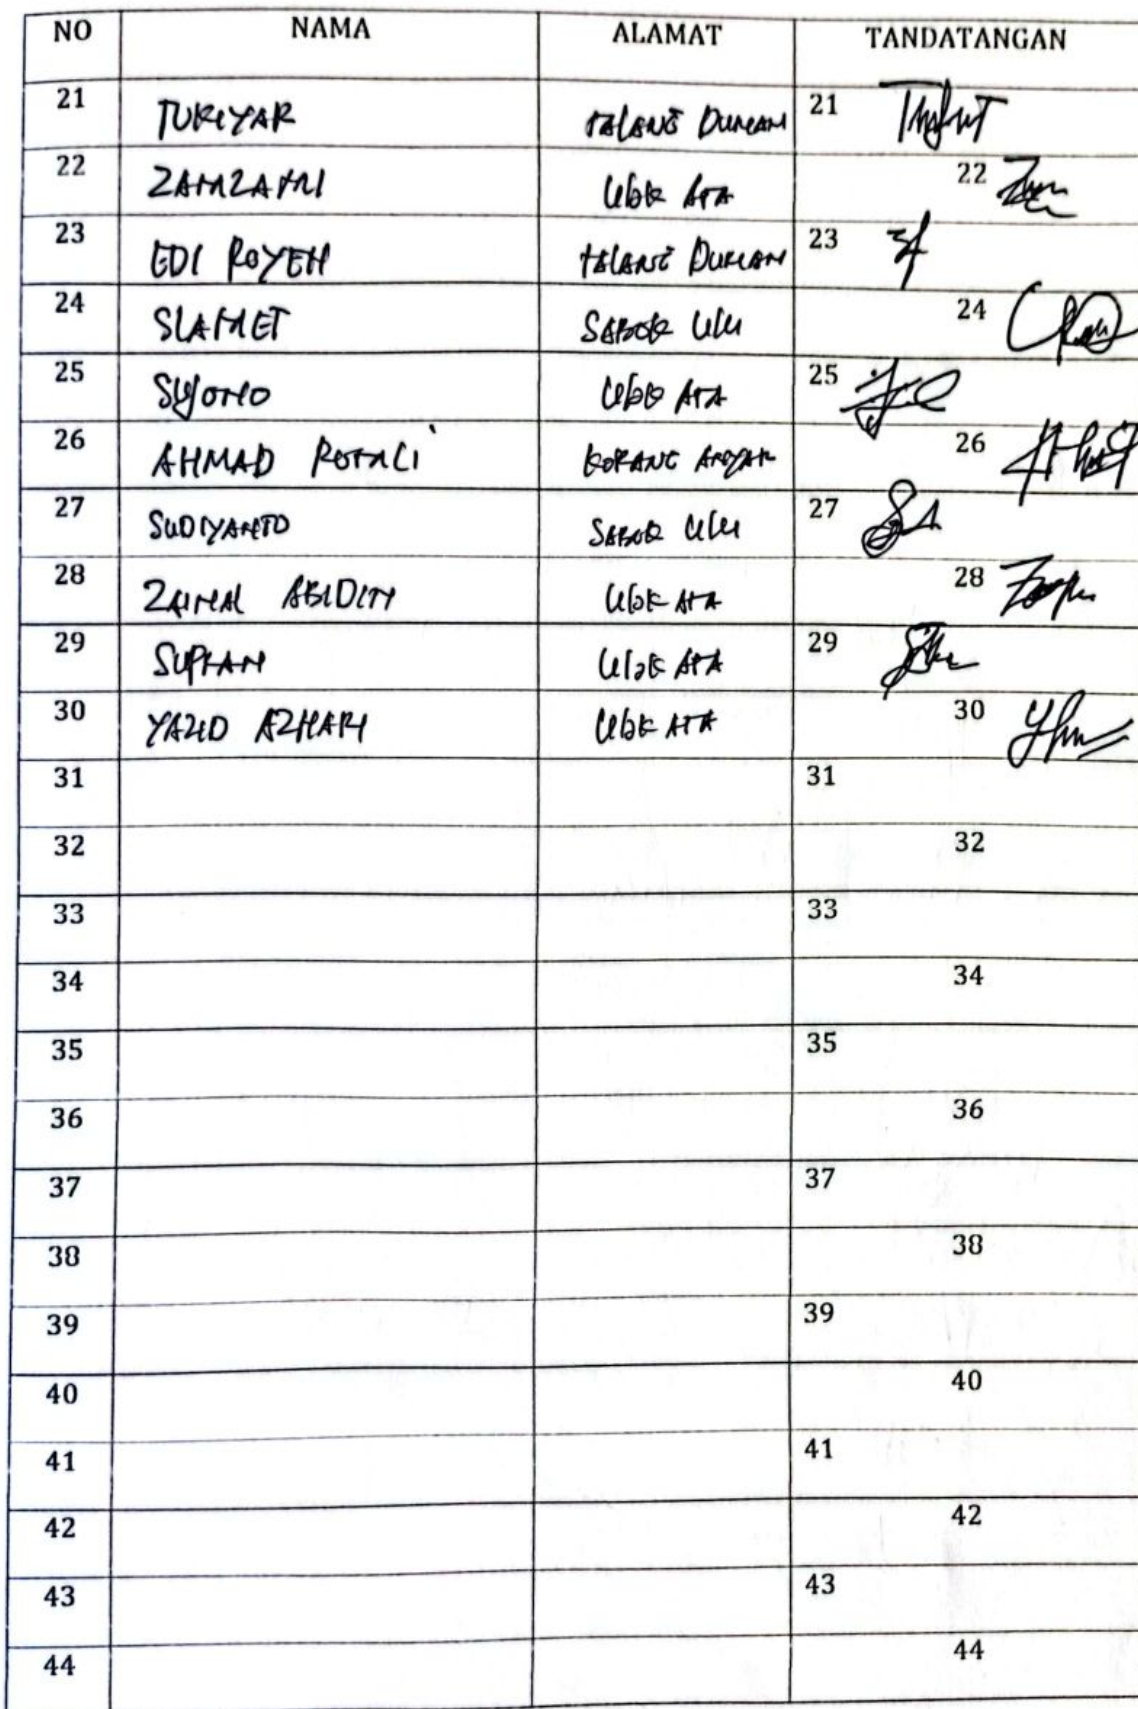 NO NAMA ALAMAT TANDATANGAN
21 TURIYAR TALANG DURIAN 21
22 ZAMZAMI 22
23 EDI ROYEN TALANG DURIAN 23
24 SLAMET SABOK ULU 24
25 SUYONO 25
26 AHMAD 26
27 SUDIYANTO SABOK ULU 27
28 ZAINAL ABIDIN 28
29 SUPIAN 29
30 YAZID AZHARI 30
31 31
32 32
33 33
34 34
35 35
36 36
37 37
38 38
39 39
40 40
41 41
42 42
43 43
44 44